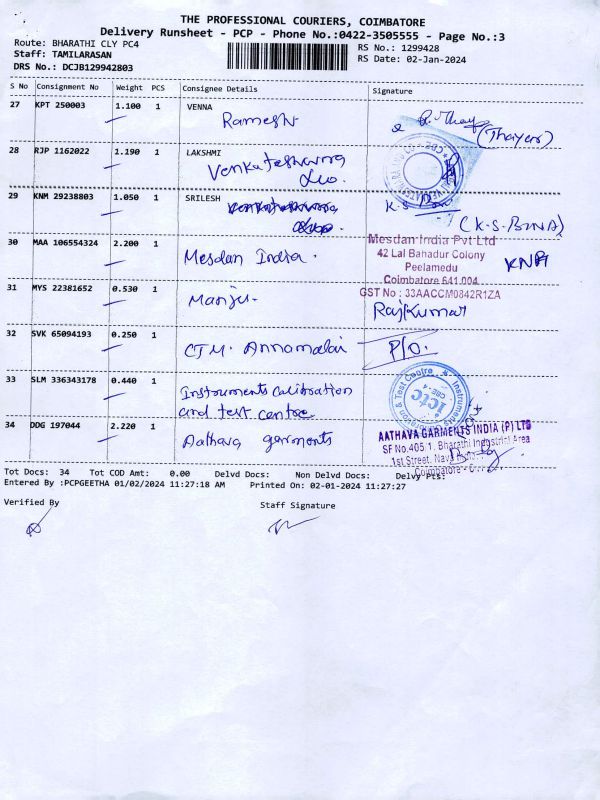 THE PROFESSIONAL COURIERS, COIMBATORE
Delivery Runsheet - PCP - Phone No.:0422-3505555 - Page No.:3
Route: BHARATHI CLY PC4
Staff: TAMILARASAN
DRS No.: DCJB129942803
RS No.: 1299428
RS Date: 02-Jan-2024
S No Consignment No Weight PCS Consignee Details Signature
27 KPT 250003 1.100 1 VENNA
Ramesh
(Thayer)
28 RJP 1162022 1.190 1 LAKSHMI
Venkateshwara
29 KNM 29238803 1.050 1 SRILESH
K.S.
(K.S.BINA)
30 MAA 106554324 2.200 1
Mesdan India.
Mesdan India Pvt Ltd
42 Lal Bahadur Colony
Peelamedu
Coimbatore 641 004
GST No : 33AACCM0842R1ZA
31 MYS 22381652 0.530 1
Manju.
RajKumar
32 SVK 65094193 0.250 1
CTM. Annamalai
P/O.
33 SLM 336343178 0.440 1
Instruments Calibration
and test centre
Instruments Calibration & Test Centre
ictc
CBE-4
34 DDG 197044 2.220 1
Aathava garments
AATHAVA GARMENTS INDIA (P) LTD
SF No.405/1, Bharathi Industrial Area
1st Street, Nava
Coimbatore -
Tot Docs: 34 Tot COD Amt: 0.00 Delvd Docs: Non Delvd Docs: Delvy Pts:
Entered By :PCPGEETHA 01/02/2024 11:27:18 AM Printed On: 02-01-2024 11:27:27
Verified By
Staff Signature